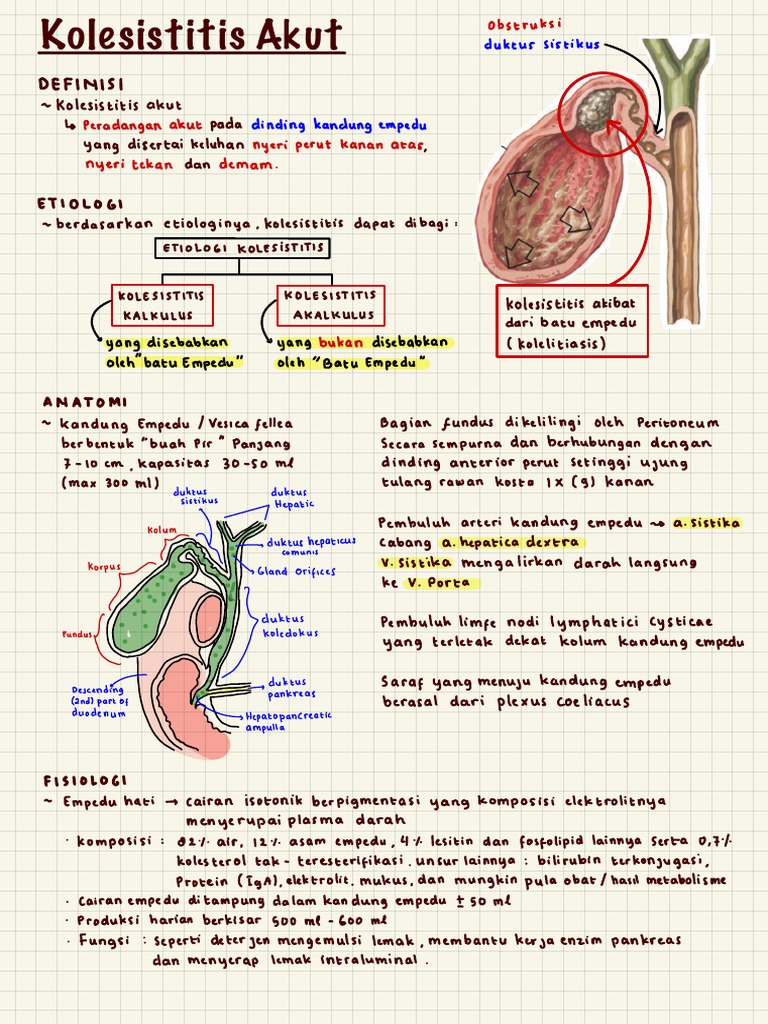 Kolesistitis Akut
Obstruksi
duktus sistikus
DEFINISI
~ Kolesistitis akut
↳ Peradangan akut pada dinding kandung empedu
yang disertai keluhan nyeri perut kanan atas,
nyeri tekan dan demam.
ETIOLOGI
~ berdasarkan etiologinya, kolesistitis dapat dibagi :
ETIOLOGI KOLESISTITIS
KOLESISTITIS
KALKULUS
KOLESISTITIS
AKALKULUS
yang disebabkan
oleh "batu Empedu"
yang bukan disebabkan
oleh "Batu Empedu"
Kolesistitis akibat
dari batu empedu
(kolelitiasis)
ANATOMI
~ Kandung Empedu / Vesica fellea
berbentuk "buah Pir" Panjang
7-10 cm, kapasitas 30-50 ml
(max 300 ml)
duktus
sistikus
duktus
Hepatic
Kolum
duktus hepaticus
comunis
Korpus
Gland Orifices
Fundus
duktus
koledokus
duktus
pankreas
Descending
(2nd) part of
duodenum
Hepatopancreatic
ampulla
Bagian fundus dikelilingi oleh Peritoneum
Secara sempurna dan berhubungan dengan
dinding anterior perut setinggi ujung
tulang rawan kosta IX (9) kanan
Pembuluh arteri kandung empedu → a. sistika
Cabang a. hepatica dextra
V. Sistika mengalirkan darah langsung
ke V. Porta
Pembuluh limfe nodi lymphatici Cysticae
yang terletak dekat kolum kandung empedu
Saraf yang menuju kandung empedu
berasal dari plexus coeliacus
FISIOLOGI
~ Empedu hati → Cairan isotonik berpigmentasi yang komposisi elektrolitnya
menyerupai plasma darah
· Komposisi : 82% air, 12% asam empedu, 4% lesitin dan fosfolipid lainnya serta 0,7%
kolesterol tak-teresterifikasi. unsur lainnya : bilirubin terkonjugasi,
Protein (IgA), elektrolit, mukus, dan mungkin pula obat / hasil metabolisme
· Cairan empedu ditampung dalam kandung empedu ± 50 ml
· Produksi harian berkisar 500 ml - 600 ml
· Fungsi : Seperti deterjen mengemulsi lemak, membantu kerja enzim pankreas
dan menyerap lemak intraluminal.